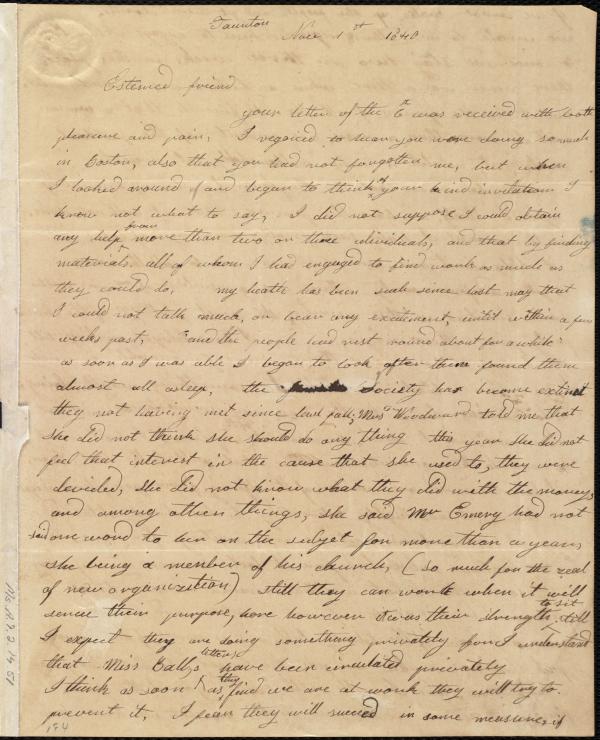 Taunton Nov 1st 1840
Esteemed friend
your letter of the 6th was received with both
pleasure and pain, I regoiced to hear you were doing so much
in Boston, also that you had not forgotten me, but when
I looked around and began to think of your kind invitations I
know not what to say, I did not suppose I could obtain
any help from more than two or three individuals, and that by finding
materials, all of whom I had engaged to find work as much as
they could do, my health has been such since last may that
I could not talk much, or bear any excitement, until within a few
weeks past, "and the people had rest round about for a while"
as soon as I was able I began to look after them found them
almost all asleep, the Society has become extinct
they not having met since last fall, Mrs Woodward told me that
she did not think she should do any thing this year she did not
feel that interest in the cause that she used to, they were
decided, she did not know what they did with the money,
and among other things, she said Mr Emery had not
said one word to her on the subject for more than a year,
she being a member of his church, (so much for the zeal
of new organization) still they can work when it will
serve their purpose, here however it was their strength to sit still
I expect they are doing something privately for I understand
that Miss Balls letters have been circulated privately
I think as soon as they find we are at work they will try to
prevent it, I fear they will succeed in some measure, if
Ms.A.9.2.14.51
184